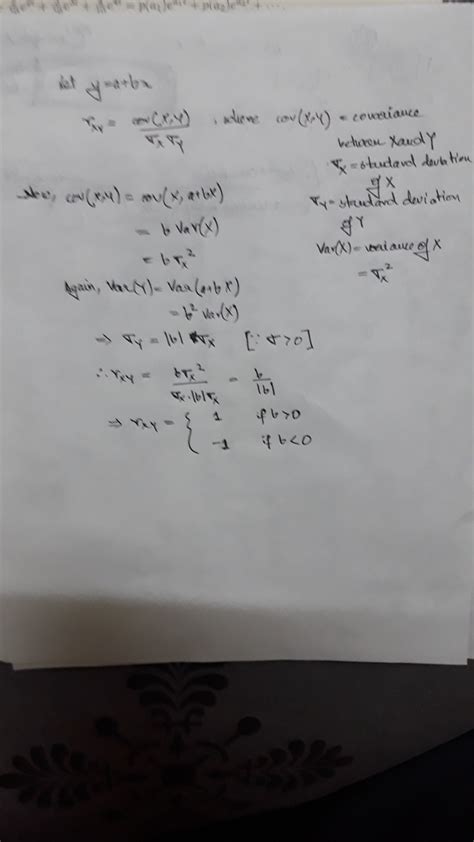 let y = a+bx
r_xy = cov(X,Y) / σ_X σ_Y , where cov(X,Y) = covariance
between X and Y
σ_X = standard deviation
of X
σ_Y = standard deviation
of Y
Var(X) = variance of X
= σ_X²
Now, cov(X,Y) = cov(X, a+bX)
= b Var(X)
= b σ_X²
Again, Var(Y) = Var(a+bX)
= b² Var(X)
⇒ σ_Y = |b| σ_X [∵ σ>0]
∴ r_XY = bσ_X² / σ_X·|b|σ_X = b / |b|
⇒ r_XY = { 1 if b>0
-1 if b<0